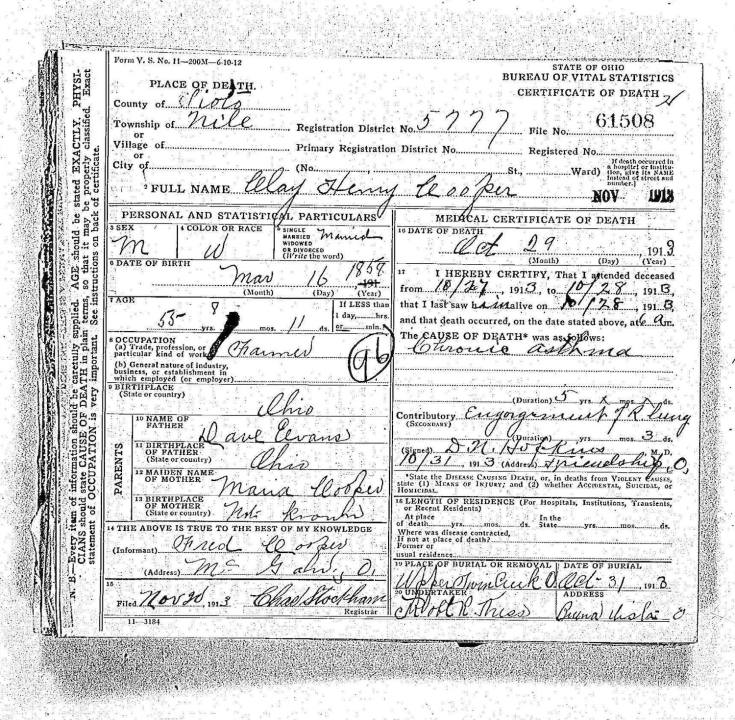 Form V. S. No. 11—200M—6-10-12
STATE OF OHIO
BUREAU OF VITAL STATISTICS
CERTIFICATE OF DEATH
PLACE OF DEATH.
County of
Township of Nile
or
Village of
or
City of
Registration District No. 5777
File No. 61508
Primary Registration District No.
Registered No.
(No. , St., Ward)
If death occurred in a hospital or institution, give its NAME instead of street and number.)
2 FULL NAME Clay Henry Cooper
NOV 1913
PERSONAL AND STATISTICAL PARTICULARS
3 SEX
M
4 COLOR OR RACE
W
5 SINGLE
MARRIED
WIDOWED
OR DIVORCED
(Write the word)
Married
6 DATE OF BIRTH
Mar 16 1858
191
(Month) (Day) (Year)
7 AGE
55 yrs. 8 mos. 11 ds.
If LESS than
1 day, hrs.
or min.
8 OCCUPATION
(a) Trade, profession, or
particular kind of work Farmer
(b) General nature of industry,
business, or establishment in
which employed (or employer)
96
9 BIRTHPLACE
(State or country)
Ohio
PARENTS
10 NAME OF
FATHER
Dave Evans
11 BIRTHPLACE
OF FATHER
(State or country)
Ohio
12 MAIDEN NAME
OF MOTHER
Maria Cooper
13 BIRTHPLACE
OF MOTHER
(State or country)
Not Known
14 THE ABOVE IS TRUE TO THE BEST OF MY KNOWLEDGE
(Informant) Fred Cooper
(Address) Mc Gaw, O.
15
Filed Nov 20, 1913 Chas Stockham
Registrar
11—3184
MEDICAL CERTIFICATE OF DEATH
16 DATE OF DEATH
Oct 29, 1913
(Month) (Day) (Year)
17 I HEREBY CERTIFY, That I attended deceased
from 10/27, 1913, to 10/28, 1913,
that I last saw him alive on 10/28, 1913,
and that death occurred, on the date stated above, at 6 am.
The CAUSE OF DEATH* was as follows:
Chronic asthma
(Duration) 5 yrs. x mos. x ds.
Contributory Engorgement of R lung
(SECONDARY)
(Duration) yrs. mos. 3 ds.
(Signed) M. D.
10/31, 1913 (Address) Friendship, O.
*State the DISEASE CAUSING DEATH, or, in deaths from VIOLENT CAUSES, state (1) MEANS OF INJURY; and (2) whether ACCIDENTAL, SUICIDAL, or HOMICIDAL.
18 LENGTH OF RESIDENCE (For Hospitals, Institutions, Transients, or Recent Residents)
At place
of death yrs. mos. ds.
In the
State yrs. mos. ds.
Where was disease contracted,
If not at place of death?
Former or
usual residence
19 PLACE OF BURIAL OR REMOVAL
Upper Twin Creek O
DATE OF BURIAL
Oct 31, 1913
20 UNDERTAKER
ADDRESS
Buena Vista O
N. B.—Every item of information should be carefully supplied. AGE should be stated EXACTLY. PHYSICIANS should state CAUSE OF DEATH in plain terms, so that it may be properly classified. Exact statement of OCCUPATION is very important. See instructions on back of certificate.